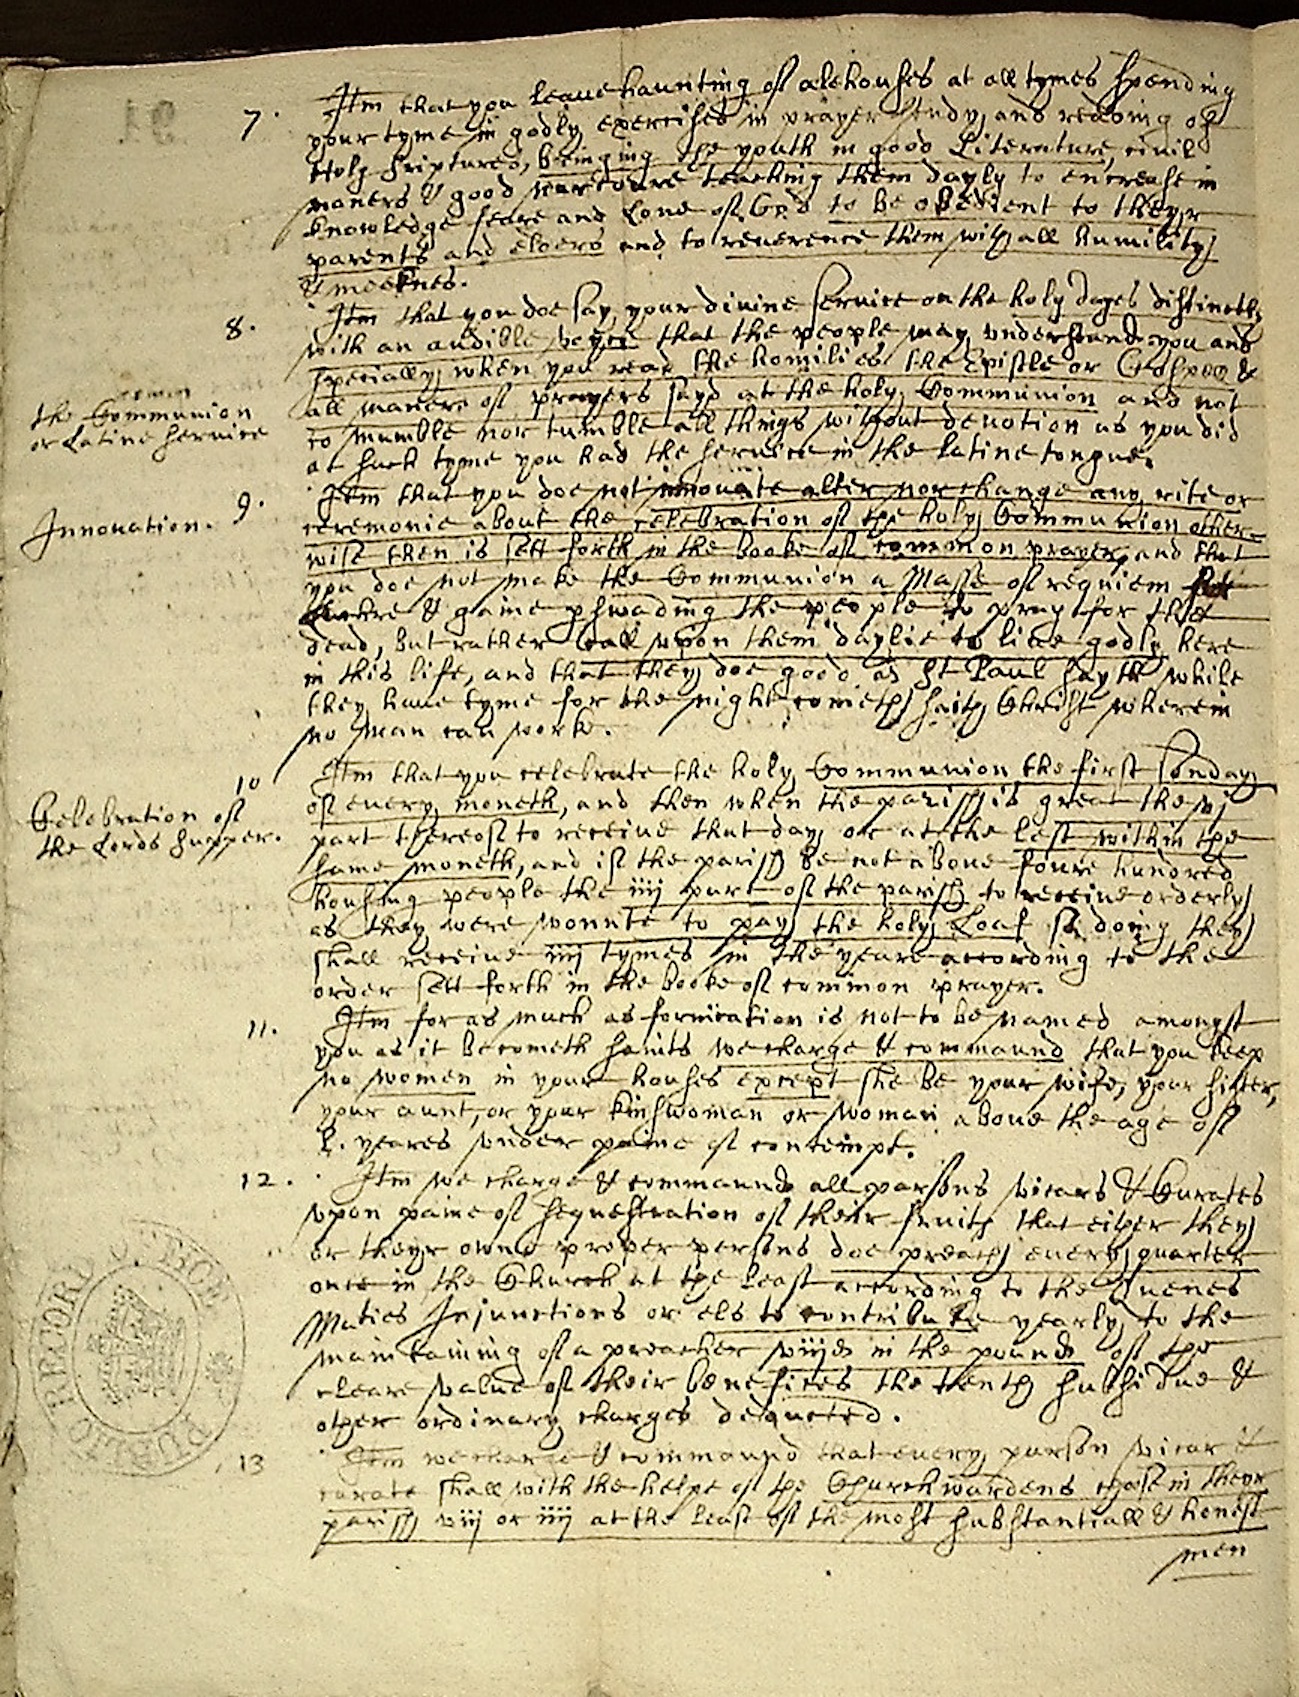 7. Itm that you leaue haunting of alehouses at all tymes spending
your tyme in godly exercises in prayer study, and reading of
Holy scriptures, bringing the youth in good Literature, ciuil
maners & good nurtoure teaching them dayly to encrease in
knowledge feare and loue of God to be obedient to theyr
parents and elders and to reuerence them with all humility
& meeknes.
8. Itm that you doe say your diuine seruice on the holy dayes distinctly
with an audible voyce that the people may vnderstand you and
specially when you read the homilies the Epistle or Ghospell &
all maner of prayers sayd at the holy Communion and not
the Communion
or Latine seruice
to mumble nor tumble all things without deuotion as you did
at such tyme you had the seruice in the latine tongue.
9. Itm that you doe not innouate alter nor change any rite or
Innouation.
ceremonie about the celebration of the holy Communion other-
wise then is sett forth in the booke of common prayer, and that
you doe not make the Communion a Masse of requiem for
lucre & gaine perswading the people to pray for the
dead, but rather call vpon them daylie to liue godly here
in this life, and that they doe good as St Paul sayth while
they haue tyme for the night cometh saith Christ wherein
no man can worke.
10 Itm that you celebrate the holy Communion the first Sonday
Celebration of
the Lords supper.
of euery moneth, and then when the parish is great the vj
part thereof to receiue that day or at the lest within the
same moneth, and if the parish be not aboue foure hundred
housling people the iiij part of the parish to receiue orderly
as they were wonnte to pay the holy Loaf so doing they
shall receiue iiij tymes in the yeare according to the
order sett forth in the booke of common prayer.
11. Itm for as much as fornication is not to be named amongst
you as it becometh saints we charge & commaund that you keep
no women in your houses except she be your wife, your sister,
your aunt, or your kinswoman or woman aboue the age of
L. yeares vnder paine of contempt.
12. Itm we charge & commaund all parsons vicars & Curates
vpon paine of sequestration of their fruits that either they
or theyr owne proper persons doe preach euery quarter
once in the Church at the least according to the Quenes
Maties Iniunctions or els to contribute yearly to the
maintaining of a preacher viijd in the pound of the
cleare value of their benefices the tenth subsidue &
other ordinary charges deducted.
13 Itm we charge & commaund that euery parson vicar &
curate shall with the helpe of the Churchwardens chose in theyr
parish viij or iiij at the least of the most substantiall & honest
men
PUBLIC RECORD OFFICE